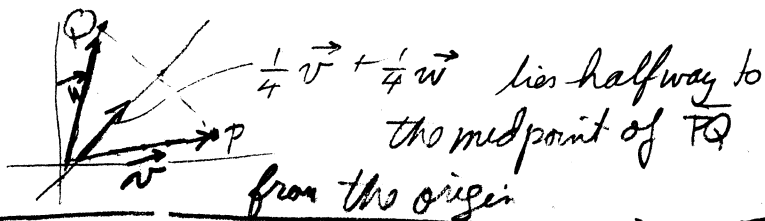 Q
w⃗
¼ v⃗ + ¼ w⃗ lies halfway to
the medpoint of P̅Q̅
P
v⃗
from the origin